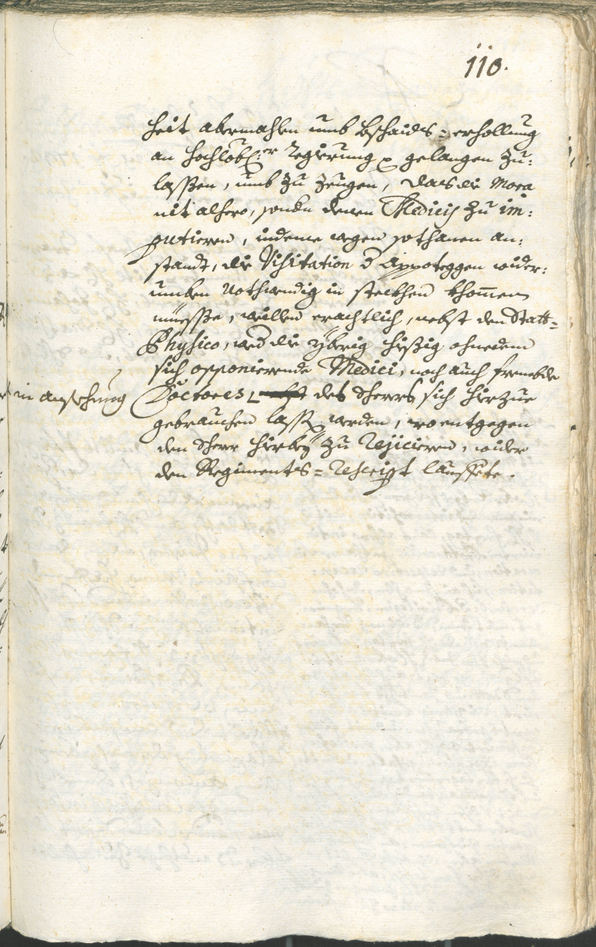 110.
heit abermahlen umb Bschaids=erhollung
an Hochlöbl:r Regierung gelangen zu:
lassen, umb zu zeugen, das die Mora
nit alhero, sondern denen Medicis zu im:
putieren, indeme wegen sothanen an:
standt, die Visitation d Appoteggen wider:
umben nothwendig in steckhen khommen
miesse, willen erachtlich, nebst den Statt=
Physico, die ybrig hießig ohnedem
sich opponierende Medici, noch auch frembde
in ansechung
Doctores, des Sherrs sich hierzue
gebrauchen lassen werden, wo entgegen
den Sherr hierbey zu Rejicieren, wider
den Regiments=Rescript lauffete.